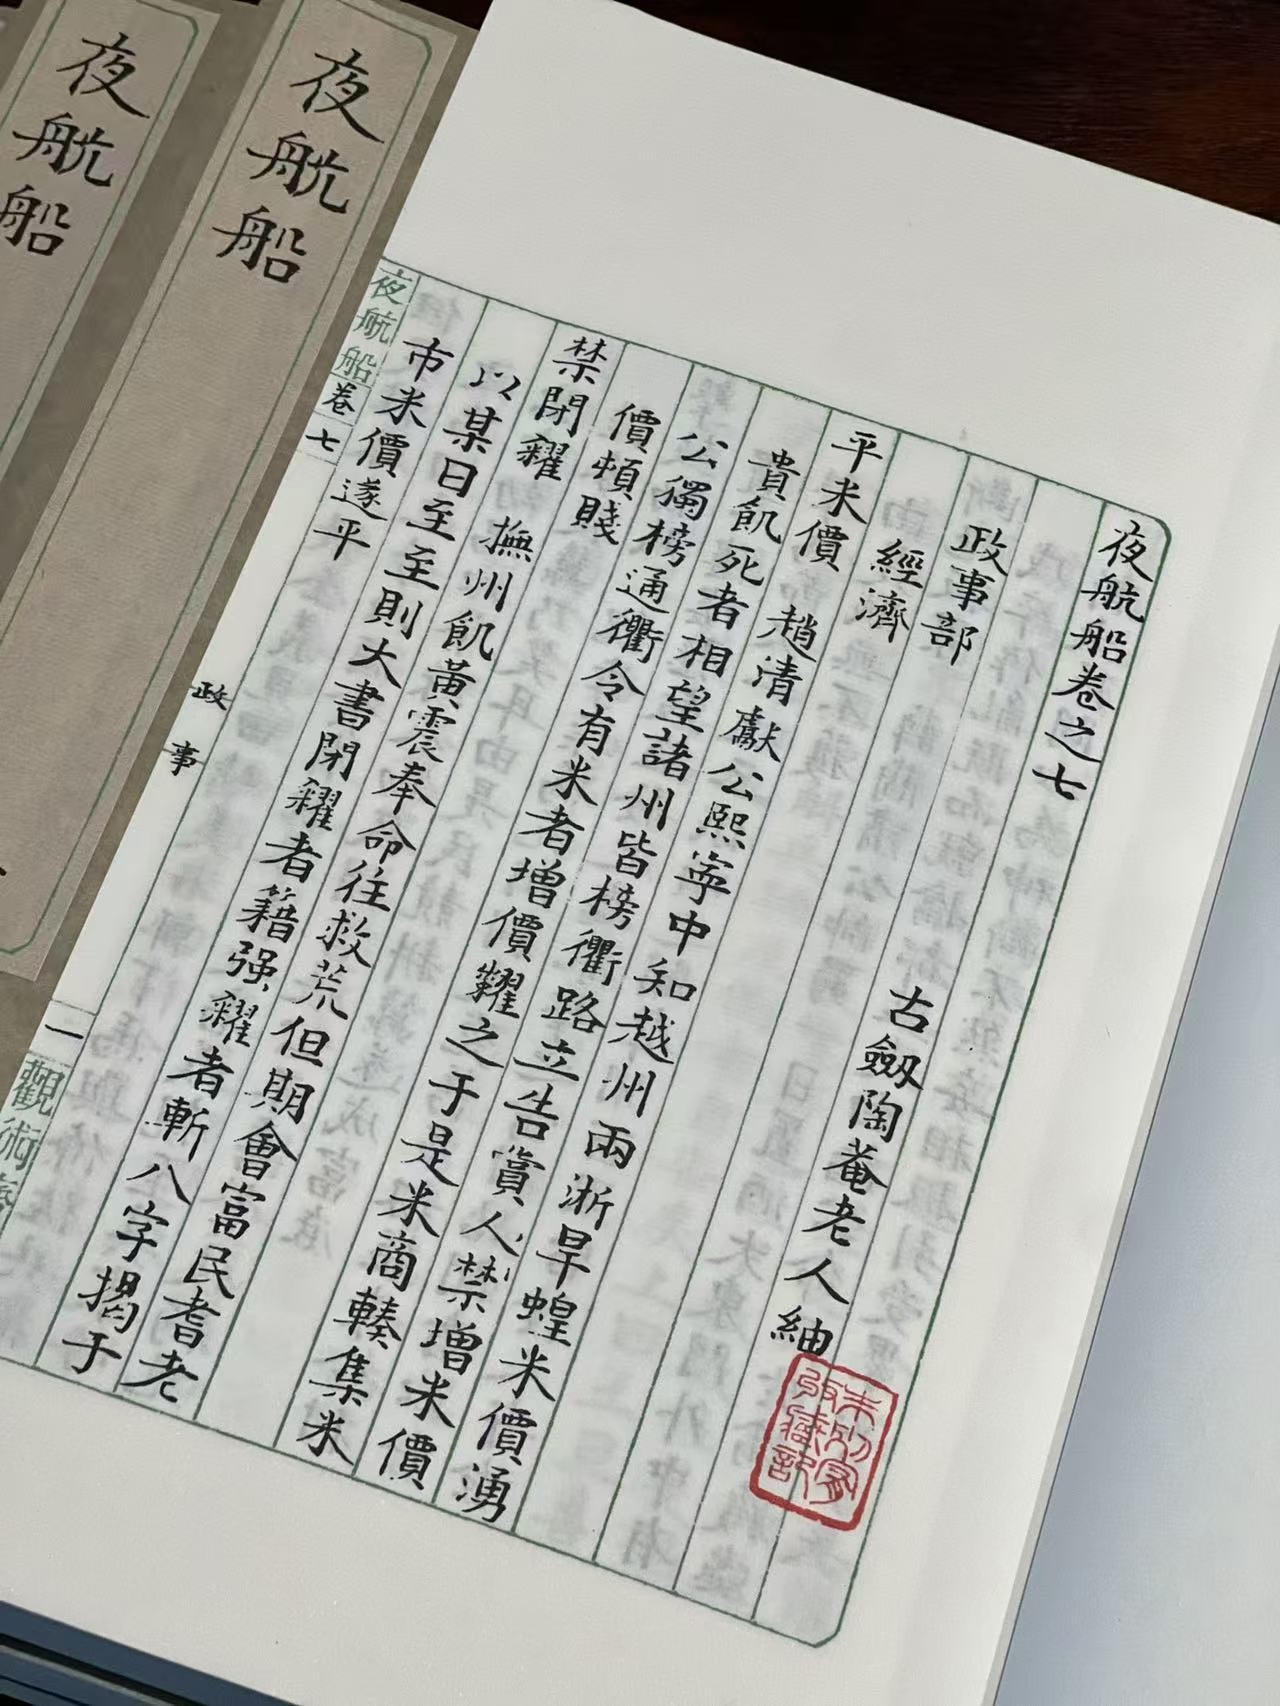 夜航船
夜航船
夜航船卷之七
古劍陶菴老人紬
朱別宥
收藏記
政事部
經濟
平米價 趙清獻公熙寧中知越州兩淅旱蝗米價湧
貴飢死者相望諸州皆榜衢路立告賞人禁增米價
公獨榜通衢令有米者增價糶之于是米商輳集米
價頓賤
禁閉糴 撫州飢黃震奉命往救荒但期會富民耆老
以某日至至則大書閉糴者籍强糴者斬八字揭于
市米價遂平
夜航船 卷七 政事 一 觀術齋